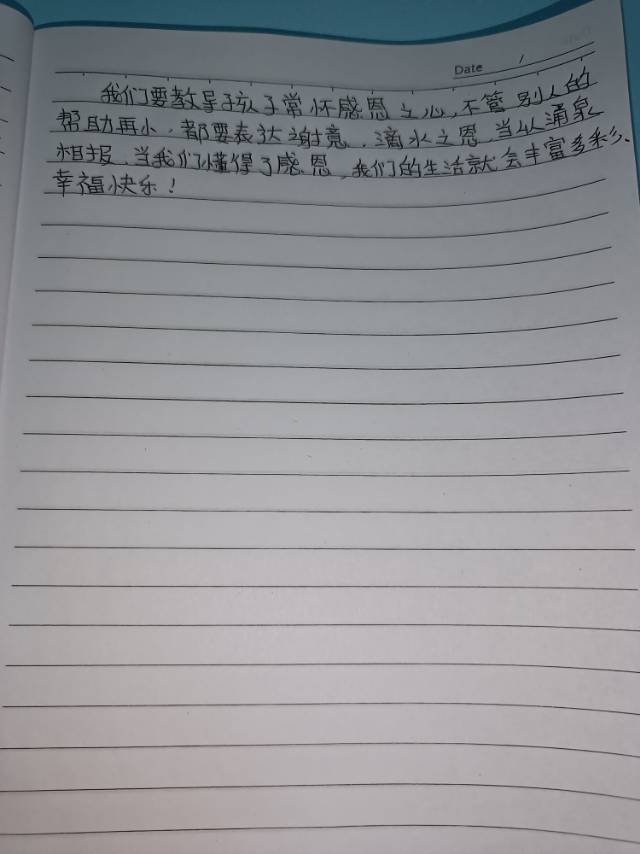 Date /
我们要教导孩子常怀感恩之心,不管别人的
帮助再小,都要表达谢意,滴水之恩,当以涌泉
相报,当我们懂得了感恩,我们的生活就会丰富多彩、
幸福快乐!